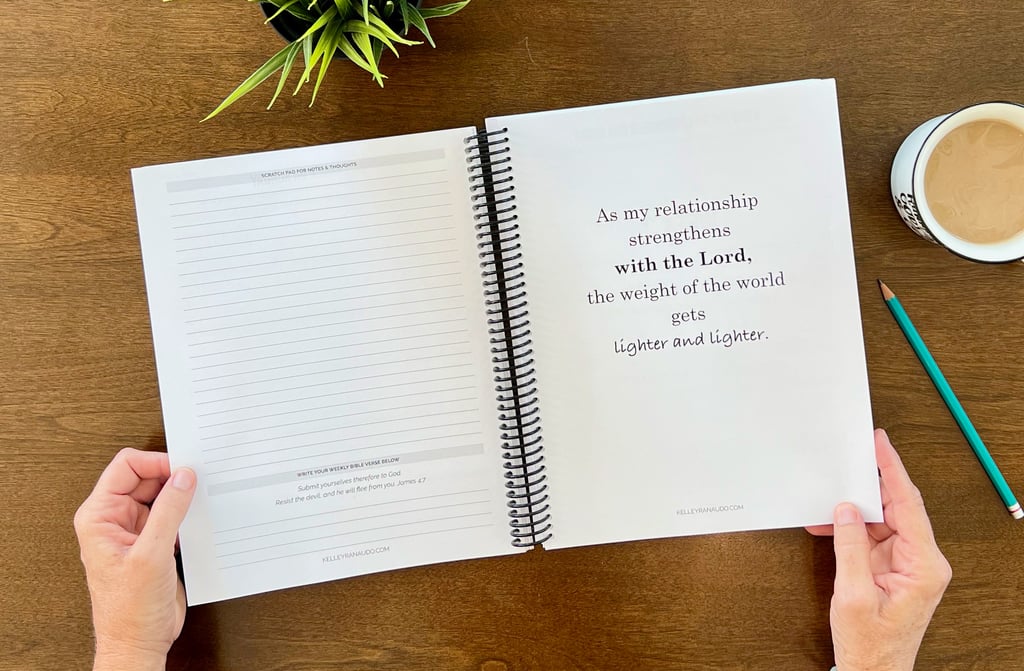 SCRATCH PAD FOR NOTES & THOUGHTS
WRITE YOUR WEEKLY BIBLE VERSE BELOW
Submit yourselves therefore to God.
Resist the devil, and he will flee from you. James 4:7
KELLEYRANAUDO.COM
As my relationship
strengthens
with the Lord,
the weight of the world
gets
lighter and lighter.
KELLEYRANAUDO.COM